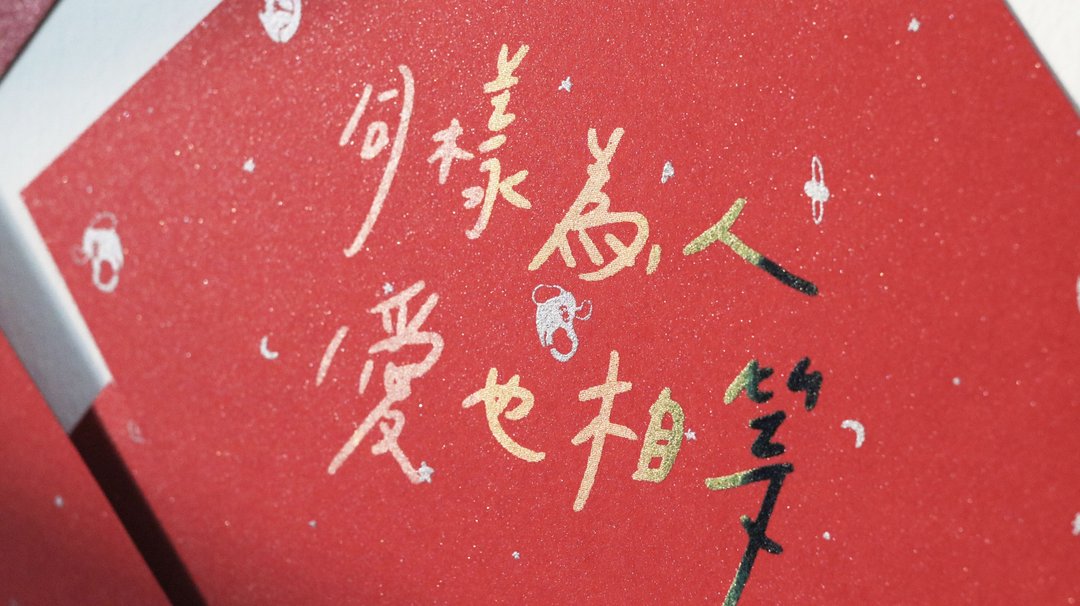 同樣為人
愛也相等